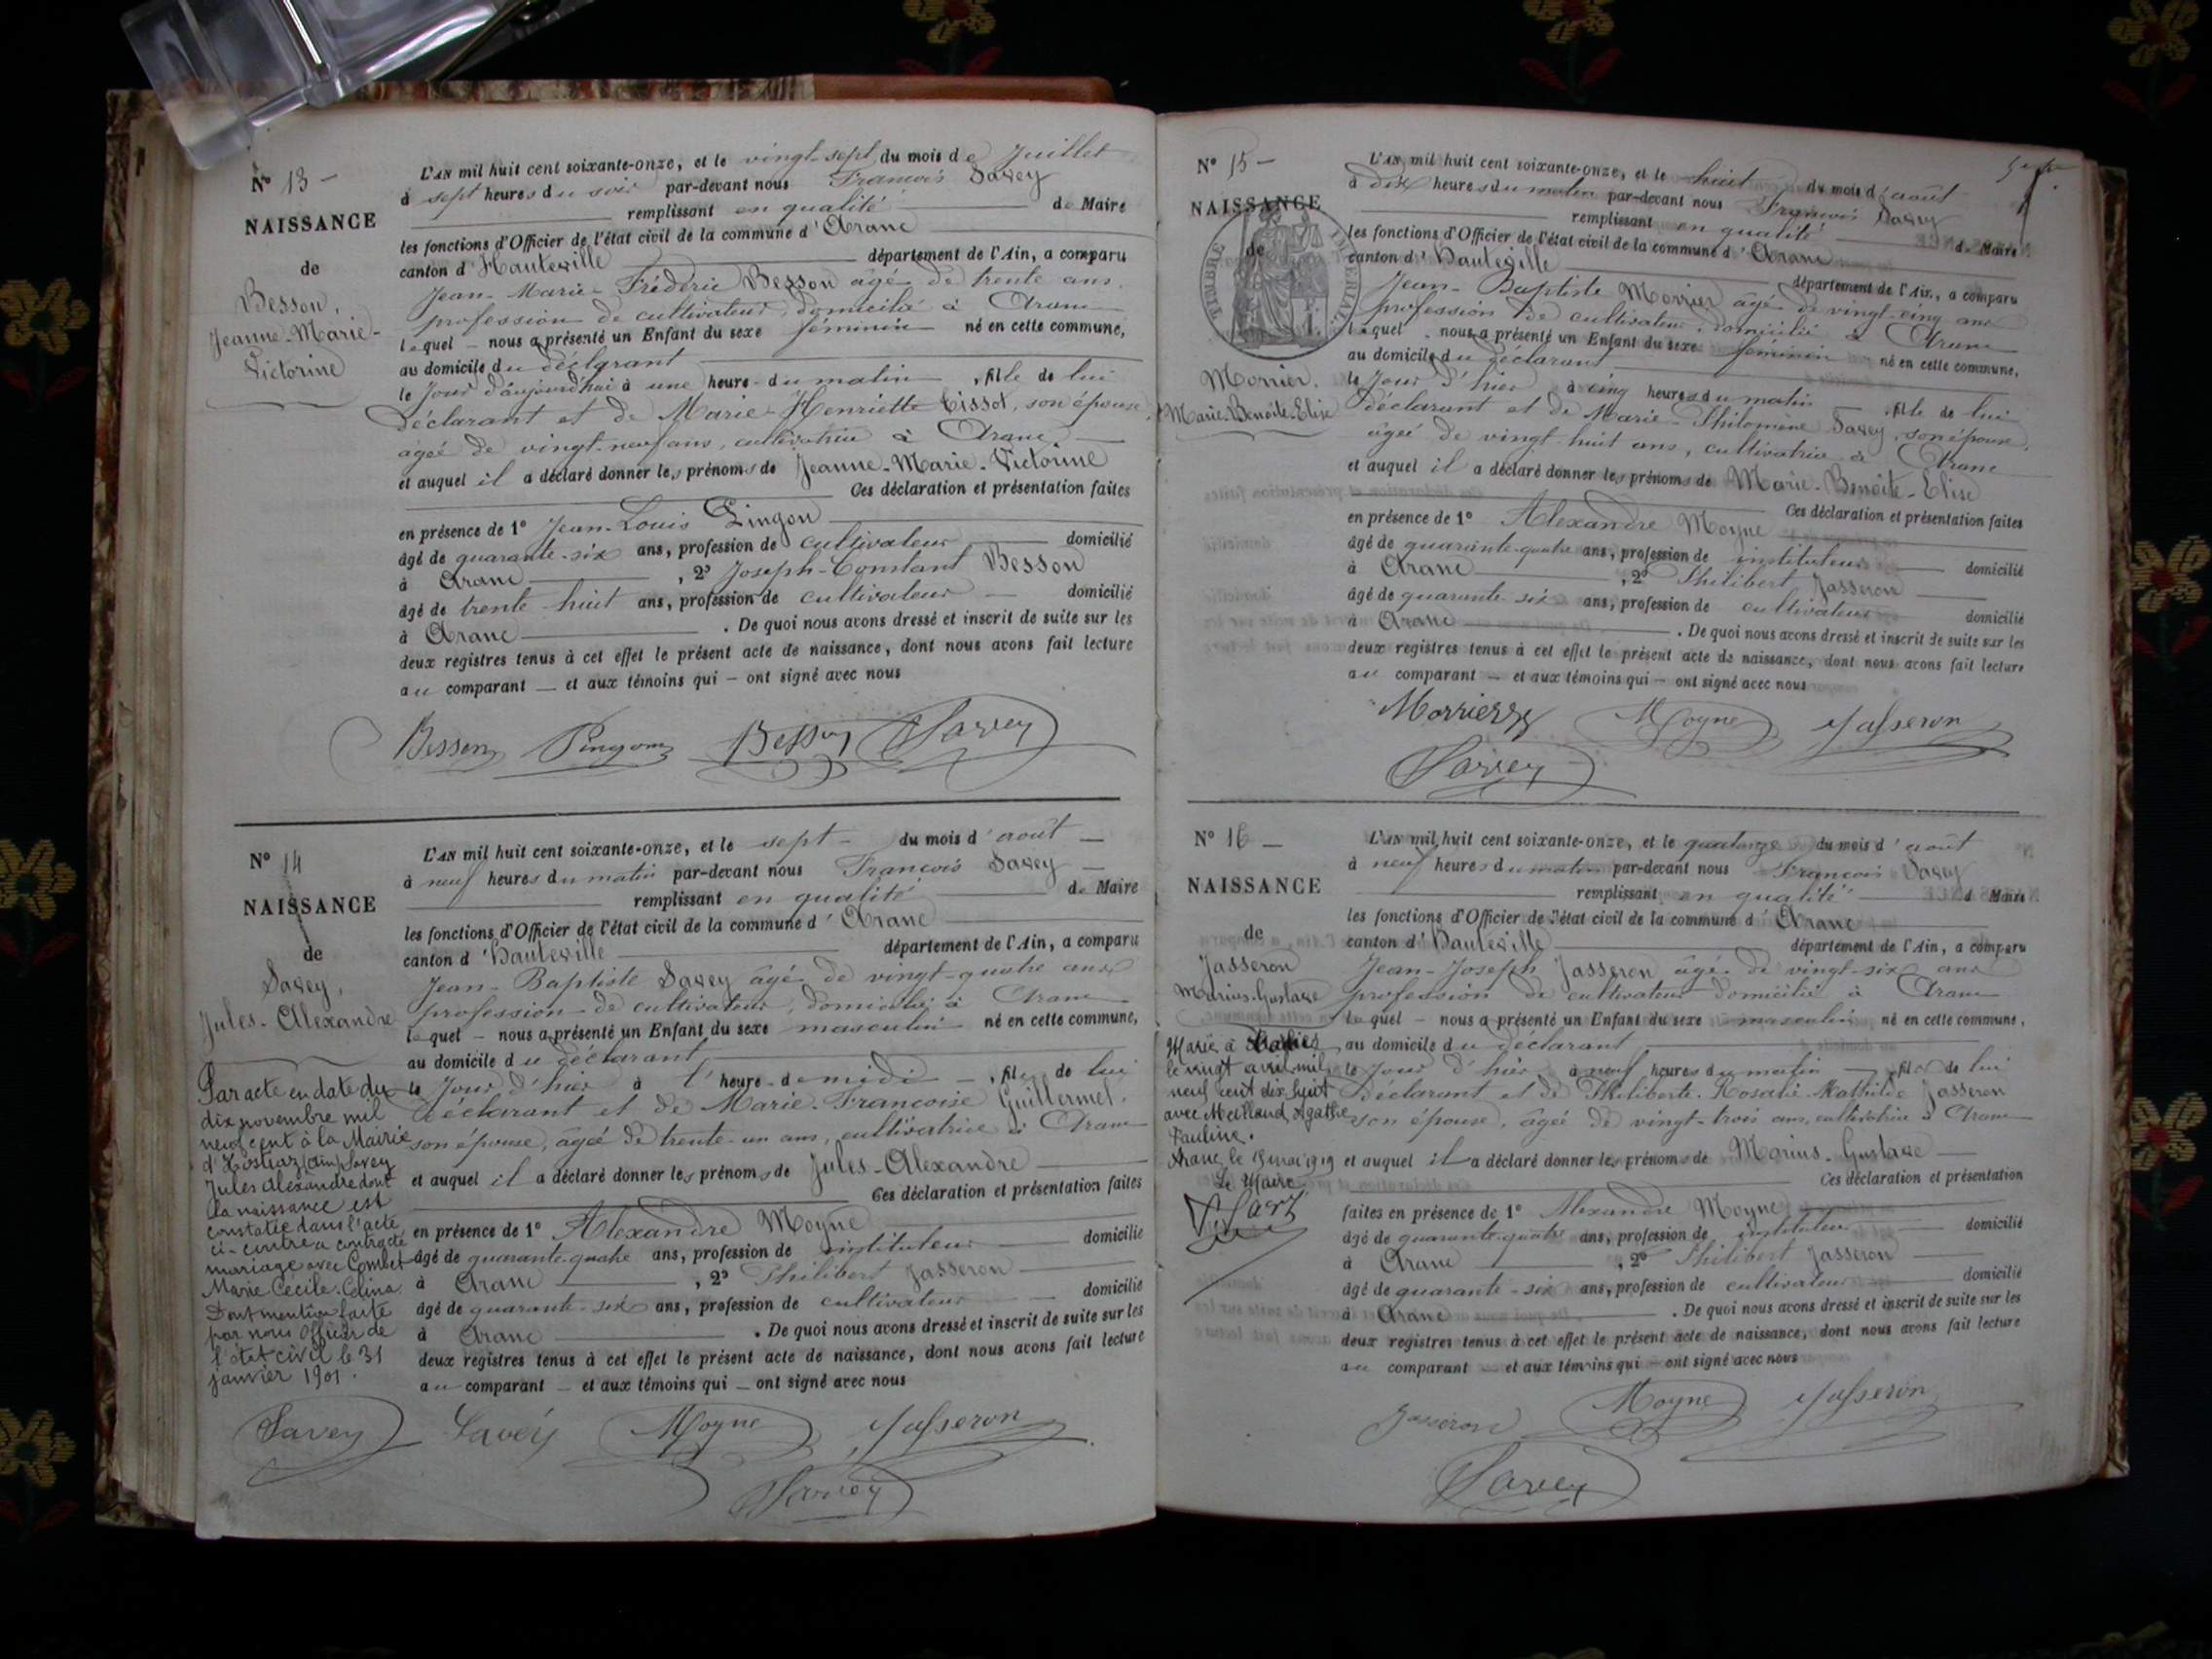 N° 13 —
NAISSANCE
de
Besson,
Jeanne-Marie-
Victorine
L'AN mil huit cent soixante-onze, et le vingt-sept du mois de Juillet
à sept heures du soir par-devant nous François Savey
remplissant en qualité de Maire
les fonctions d'Officier de l'état civil de la commune d'Aranc
canton d'Hauteville département de l'Ain, a comparu
Jean-Marie-Frédéric Besson âgé de trente ans
profession de cultivateur, domicilié à Aranc
lequel — nous a présenté un Enfant du sexe féminin né en cette commune,
au domicile du déclarant
le jour d'aujourd'hui à une heure du matin, fille de lui
déclarant et de Marie-Henriette Tissot, son épouse,
âgée de vingt-neuf ans, cultivatrice à Aranc,
et auquel il a déclaré donner les prénoms de Jeanne-Marie-Victorine
Ces déclaration et présentation faites
en présence de 1° Jean-Louis Pingon
âgé de quarante-six ans, profession de cultivateur domicilié
à Aranc, 2° Joseph-Constant Besson
âgé de trente-huit ans, profession de cultivateur domicilié
à Aranc. De quoi nous avons dressé et inscrit de suite sur les
deux registres tenus à cet effet le présent acte de naissance, dont nous avons fait lecture
au comparant — et aux témoins qui — ont signé avec nous
Besson Pingon Besson Savey
N° 14
NAISSANCE
de
Savey,
Jules-Alexandre
Par acte en date du
dix novembre mil
neuf cent à la Mairie
d'Hostiaz (Ain) Savey
Jules Alexandre dont
la naissance est
constatée dans l'acte
ci-contre a contracté
mariage avec Combet
Marie Cécile-Célina
Dont mention faite
par nous Officier de
l'état civil le 31
janvier 1901.
Savey
L'AN mil huit cent soixante-onze, et le sept — du mois d'août —
à neuf heures du matin par-devant nous François Savey —
remplissant en qualité de Maire
les fonctions d'Officier de l'état civil de la commune d'Aranc
canton d'Hauteville département de l'Ain, a comparu
Jean-Baptiste Savey âgé de vingt-quatre ans
profession de cultivateur, domicilié à Aranc
lequel — nous a présenté un Enfant du sexe masculin né en cette commune,
au domicile du déclarant,
le jour d'hier à l'heure de midi —, fils de lui
déclarant et de Marie-Françoise Guillermet,
son épouse, âgée de trente-un ans, cultivatrice à Aranc
et auquel il a déclaré donner les prénoms de Jules-Alexandre
Ces déclaration et présentation faites
en présence de 1° Alexandre Moyne
âgé de quarante-quatre ans, profession de instituteur domicilié
à Aranc, 2° Philibert Jasseron
âgé de quarante-six ans, profession de cultivateur domicilié
à Aranc. De quoi nous avons dressé et inscrit de suite sur les
deux registres tenus à cet effet le présent acte de naissance, dont nous avons fait lecture
au comparant — et aux témoins qui — ont signé avec nous
Savey Moyne Jasseron
Savey
N° 15 —
NAISSANCE
de
TIMBRE IMPERIAL
Morrier,
Marie-Benoîte-Elise
L'AN mil huit cent soixante-onze, et le huit du mois d'août
à dix heures du matin par-devant nous François Savey
remplissant en qualité de Maire
les fonctions d'Officier de l'état civil de la commune d'Aranc
canton d'Hauteville département de l'Ain, a comparu
Jean-Baptiste Morrier âgé de vingt-cinq ans
profession de cultivateur, domicilié à Aranc
lequel nous a présenté un Enfant du sexe féminin né en cette commune,
au domicile du déclarant
le jour d'hier à cinq heures du matin —, fille de lui
déclarant et de Marie-Philomène Savey, son épouse,
âgée de vingt-huit ans, cultivatrice à Aranc
et auquel il a déclaré donner les prénoms de Marie-Benoîte-Elise
Ces déclaration et présentation faites
en présence de 1° Alexandre Moyne
âgé de quarante-quatre ans, profession de instituteur domicilié
à Aranc, 2° Philibert Jasseron
âgé de quarante-six ans, profession de cultivateur domicilié
à Aranc. De quoi nous avons dressé et inscrit de suite sur les
deux registres tenus à cet effet le présent acte de naissance, dont nous avons fait lecture
au comparant — et aux témoins qui — ont signé avec nous
Morrier Moyne Jasseron
Savey
N° 16 —
NAISSANCE
de
Jasseron
Marius-Gustave
Marié à
le vingt avril mil
neuf cent dix huit
avec Meilland Agathe
Pauline.
Aranc, le 15 mai 1919
Le Maire
L'AN mil huit cent soixante-onze, et le quatorze du mois d'août
à neuf heures du matin par-devant nous François Savey
remplissant en qualité de Maire
les fonctions d'Officier de l'état civil de la commune d'Aranc
canton d'Hauteville département de l'Ain, a comparu
Jean-Joseph Jasseron âgé de vingt-six ans
profession de cultivateur domicilié à Aranc
lequel — nous a présenté un Enfant du sexe masculin né en cette commune,
au domicile du déclarant
le jour d'hier à neuf heures du matin —, fils de lui
déclarant et de Philiberte-Rosalie-Mathilde Jasseron
son épouse, âgée de vingt-trois ans, cultivatrice à Aranc
et auquel il a déclaré donner les prénoms de Marius-Gustave
Ces déclaration et présentation
faites en présence de 1° Alexandre Moyne
âgé de quarante-quatre ans, profession de instituteur domicilié
à Aranc, 2° Philibert Jasseron
âgé de quarante-six ans, profession de cultivateur domicilié
à Aranc. De quoi nous avons dressé et inscrit de suite sur les
deux registres tenus à cet effet le présent acte de naissance, dont nous avons fait lecture
au comparant — et aux témoins qui — ont signé avec nous
Jasseron Moyne Jasseron
Savey